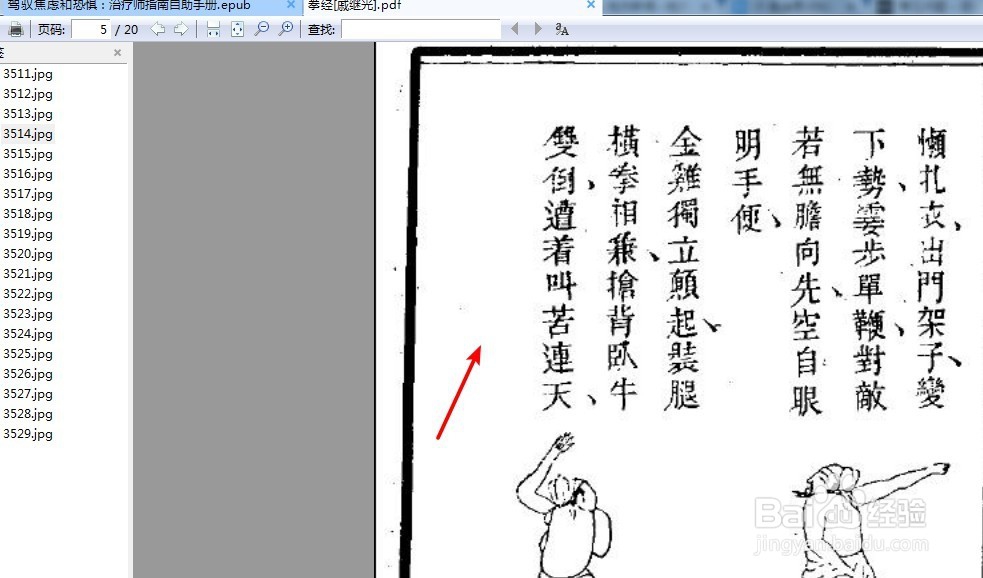 驾驭焦虑和恐惧：治疗师指南自助手册.epub
拳经[戚继光].pdf
页码: 5 / 20 查找:
签
3511.jpg
3512.jpg
3513.jpg
3514.jpg
3515.jpg
3516.jpg
3517.jpg
3518.jpg
3519.jpg
3520.jpg
3521.jpg
3522.jpg
3523.jpg
3524.jpg
3525.jpg
3526.jpg
3527.jpg
3528.jpg
3529.jpg
懶扎衣、出門架子、變
下勢、霎步單鞭、對敵
若無膽向先、空自眼
明手便、
金雞獨立顛起、裝腿
橫拳相兼、搶背臥牛
雙倒、遭着叫苦連天、
Baidu经验
jingyan.baidu.com